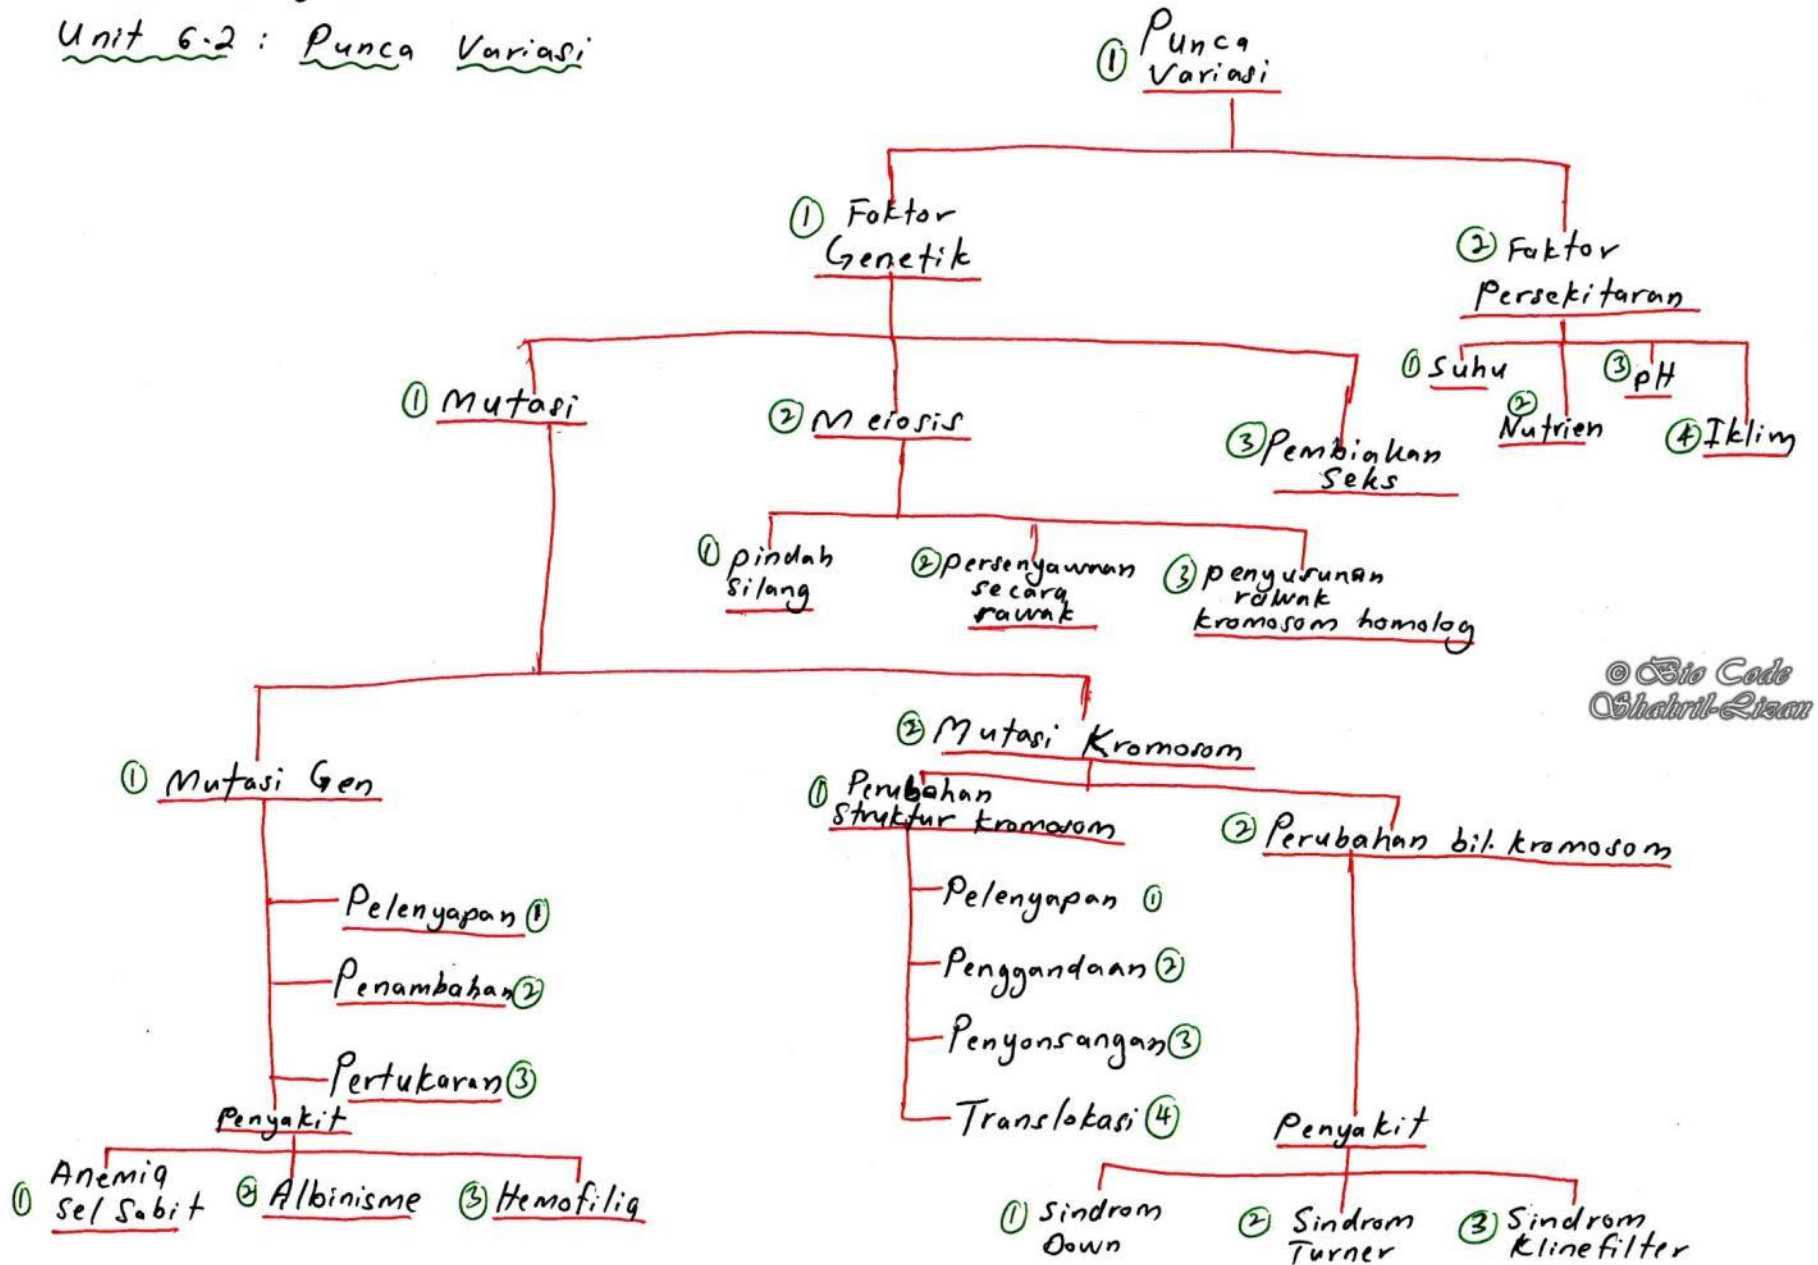 Unit 6.2 : Punca Variasi
① Punca
Variasi
① Faktor
Genetik
② Faktor
Persekitaran
① Suhu
② Nutrien
③ pH
④ Iklim
① Mutasi
② Meiosis
③ Pembiakan
Seks
① pindah
silang
② persenyawaan
secara
rawak
③ penyusunan
rawak
kromosom homolog
© Bio Code
Shahril-Lizan
① Mutasi Gen
② Mutasi Kromosom
① Perubahan
Struktur kromosom
② Perubahan bil. kromosom
Pelenyapan ①
Penambahan ②
Pertukaran ③
Penyakit
① Anemia
Sel Sabit
② Albinisme
③ Hemofilia
Pelenyapan ①
Penggandaan ②
Penyonsangan ③
Translokasi ④
Penyakit
① Sindrom
Down
② Sindrom
Turner
③ Sindrom
Klinefilter